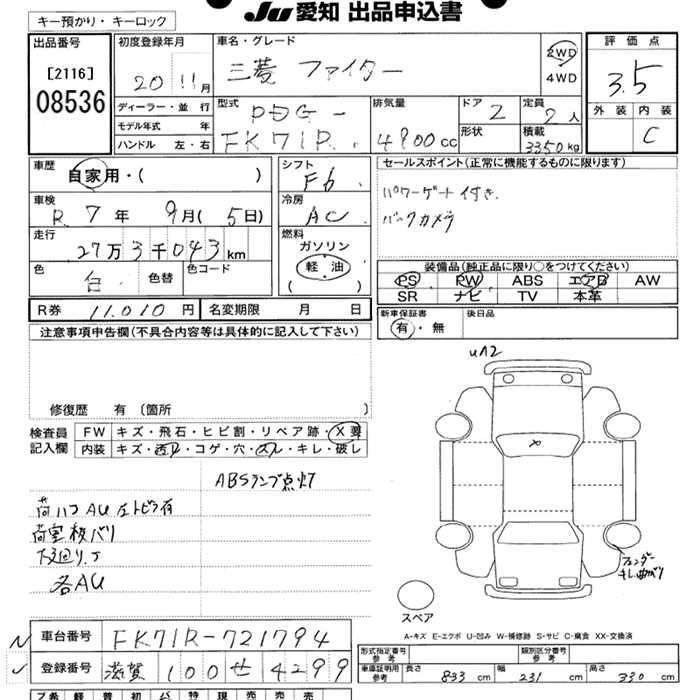 JU 愛知 出品申込書
キー預かり・キーロック
出品番号
[2116]
08536
初度登録年月
20 11月
車名・グレード
三菱 ファイター
2WD
4WD
評価点
3.5
外装 内装
C
ディーラー・並行
モデル年式 年
ハンドル 左・右
型式
PDG-
FK71R
排気量
4900cc
ドア
2
形状
定員
2人
積載
3350kg
車歴
自家用・( )
車検
R 7年 9月(5日)
走行
27万3千043km
色
白
色替
色コード
シフト
F6
冷房
AC
燃料
ガソリン
軽油
セールスポイント(正常に機能するものに限ります)
パワーゲート付き
バックカメラ
装備品(純正品に限り○をつけてください)
PS PW ABS エアB AW
SR ナビ TV 本革
R券 11.010円
名変期限 月 日
新車保証書
有・無
後日品
注意事項申告欄(不具合内容等は具体的に記入して下さい)
修復歴 有 〔箇所 〕
検査員
記入欄
FW キズ・飛石・ヒビ割・リペア跡・X要
内装 キズ・汚れ・コゲ・穴・スレ・キレ・破レ
ABSランプ点灯
荷ハコAU 左トビラ有
荷室板バリ
下廻りサ
各AU
U12
フェンダー
キレ曲がり
スペア
A-キズ E-エクボ U-凹み W-補修跡 S-サビ C-腐食 XX-交換済
車台番号 FK71R-721794
登録番号 滋賀 100 せ 4299
形式指定番号
参考
類別区分番号
参考
車両証明用
参考
長さ 833cm
幅 231cm
高さ 330cm